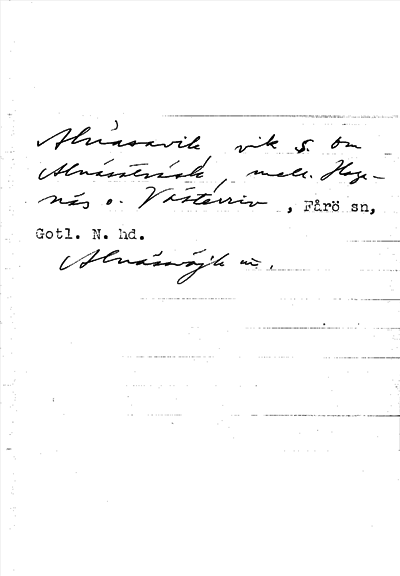 Alnäsavik, vik S. om
Alnästräsk, mell. Hage-
näs o. Västerviv, Fårö sn,
Gotl. N. hd.
Alnäsvöjk